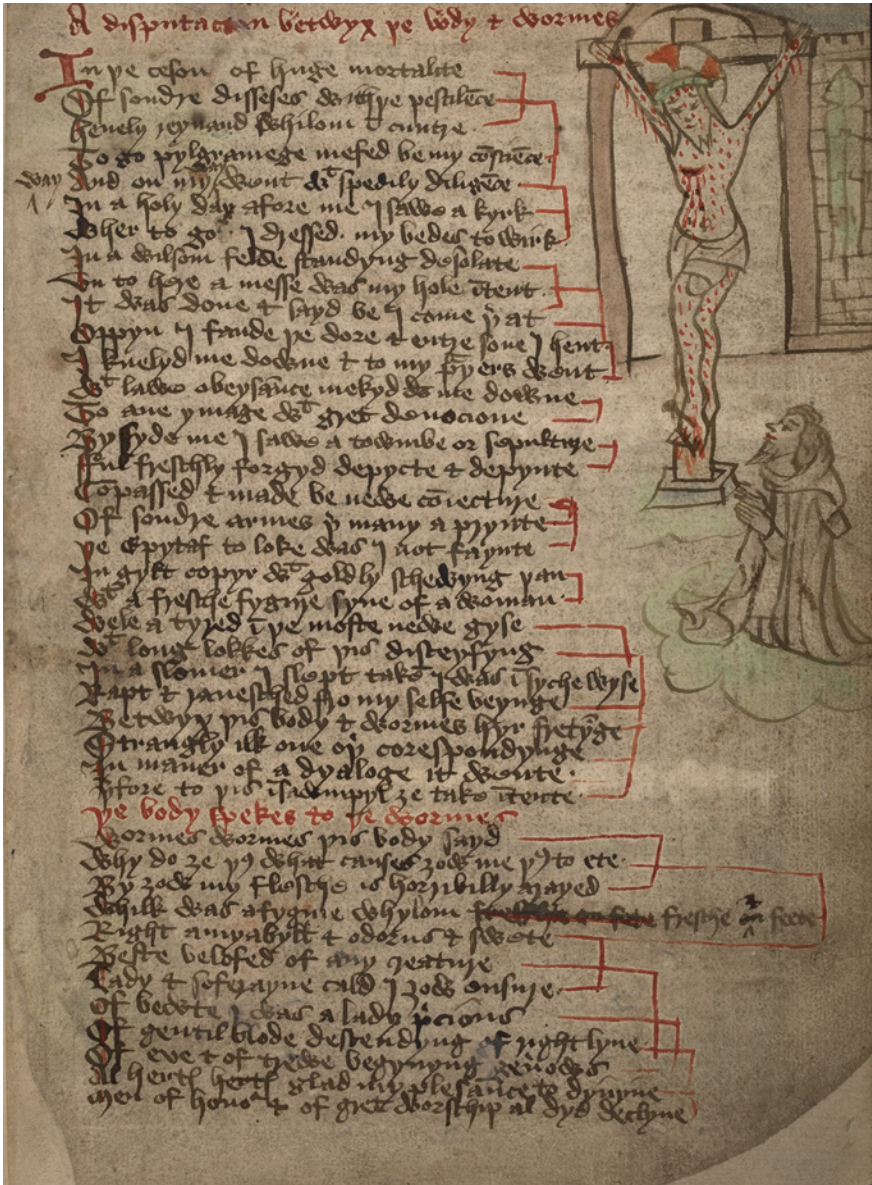 A disputacion betwyx þe body & wormes
In þe ceson of huge mortalite
Of sondre disseses with þe pestilēce
heuely reynand whilom ī cuntre
To go pylgramege mefed be my cōsciēce
way And on my went wt spedily diligēce
In a holy day afore me I sawe a kyrk
Wher to go I dressed my bedes to wirk
In a wilsom felde standyng desolate
Vn to here a messe was my hole ītent
It was done & sayd be I come þer at
Oppyn I fande þe dore & entre sone I hent
I knelyd me downe & to my prayers went
Wt lawe obeysaūce mekyd me downe
To ane ymage wt gret deuocione
By syde me I sawe a towmbe or sepulture
Ful freschly forgyd depycte & depynte
Cōpassed & made be newe cōiecture
Of sondre armes þer many a prynte
þe Epytaf to loke was I not faynte
In gylt copyr wt goldly schewyng þan
Wt a fresche fygure fyne of a woman
Wele atyred ī þe moste newe gyse
Wt long lokkes of þis disceyfyng
In a slomer I slept taken I was ī syche wyse
Rapt & rauesched fro my selfe beynge
Betwyx þis body & wormes hyr fretyge
Strangly ilk one oþer corespondynge
In maner of a dyaloge it wente
þerfore to þis īsawmpyl ze take ītente
þe body spekes to þe wormes
Wormes wormes þis body sayd
Why do ze þus what causes zow me þus to ete
By zow my flesche is horribilly arayed
Whilk was a fygure whylom fresche & feete
Right amyabyll & odorus & swete
Beste belofed of any creature
Lady & soferayne cald I zow ensure
Of bewte I was a lady precious
Of gentil blode descendyng of right lyne
Of eve & of trewe begynyng
Al hertes glad my plesaūce to dyuyne
Men of honor & of gret worschip al dyd declyne